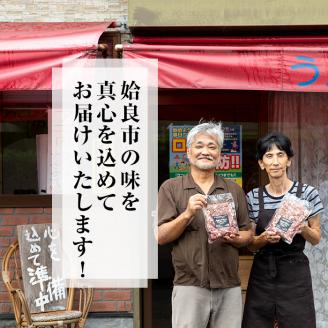 姶良市の味を
真心を込めて
お届けいたします!
う
心を
込めて
準備中